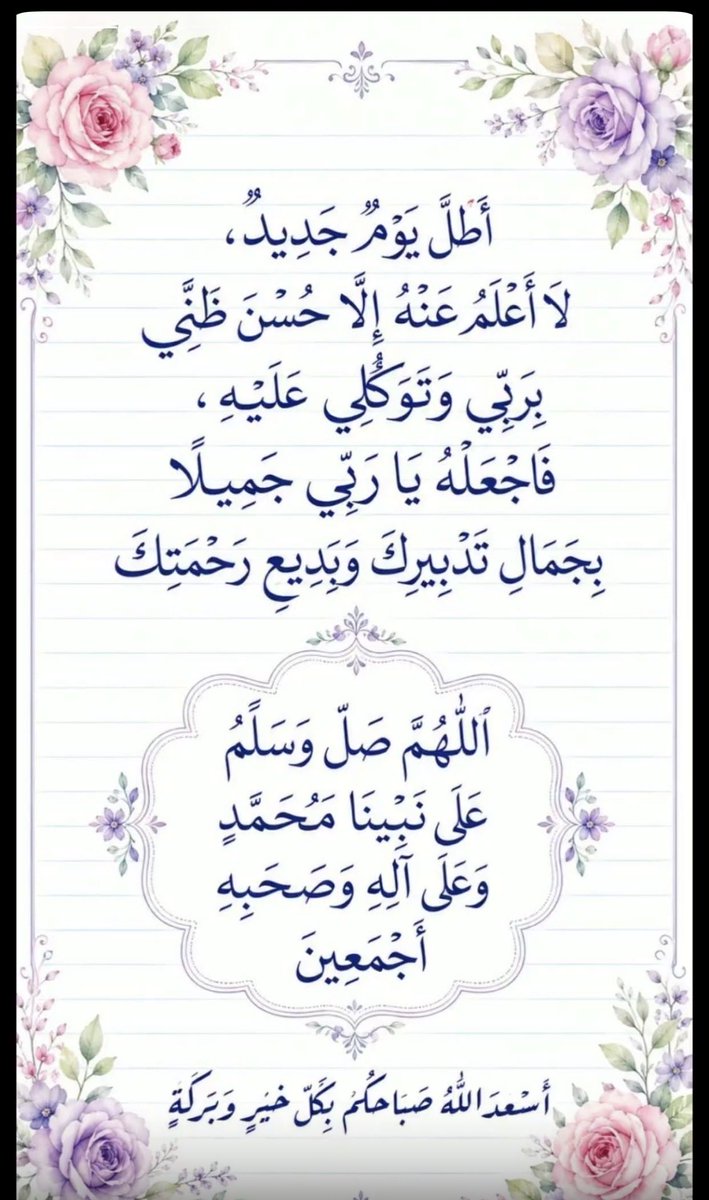 أَطَلَّ يَوْمٌ جَدِيدٌ،
لَا أَعْلَمُ عَنْهُ إِلَّا حُسْنَ ظَنِّي
بِرَبِّي وَتَوَكُّلِي عَلَيْهِ،
فَاجْعَلْهُ يَا رَبِّي جَمِيلًا
بِجَمَالِ تَدْبِيرِكَ وَبَدِيعِ رَحْمَتِكَ
ٱللَّهُمَّ صَلّ وَسَلًمُ
عَلَى نَبِّيْنَا مَحُمَّدٍ
وَعَلَى آلِهِ وَصَحَبِهِ
أَجْمَعِينَ
أَسْعدَ اللَّهُ صَبَاحكُمْ بِكَلّ خيْرٍ وَبَرَكَةٍ